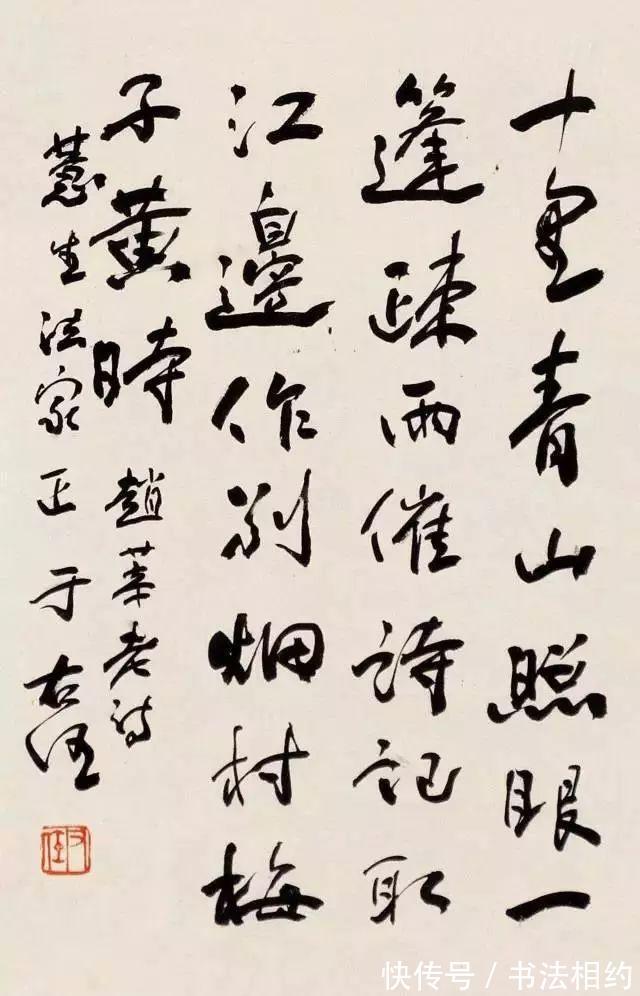 十里青山照眼一
篷疎雨催詩記取
江邊作別烟村梅
子黄時
趙老詩
生法家正 于右任
右任
快传号 / 书法相约